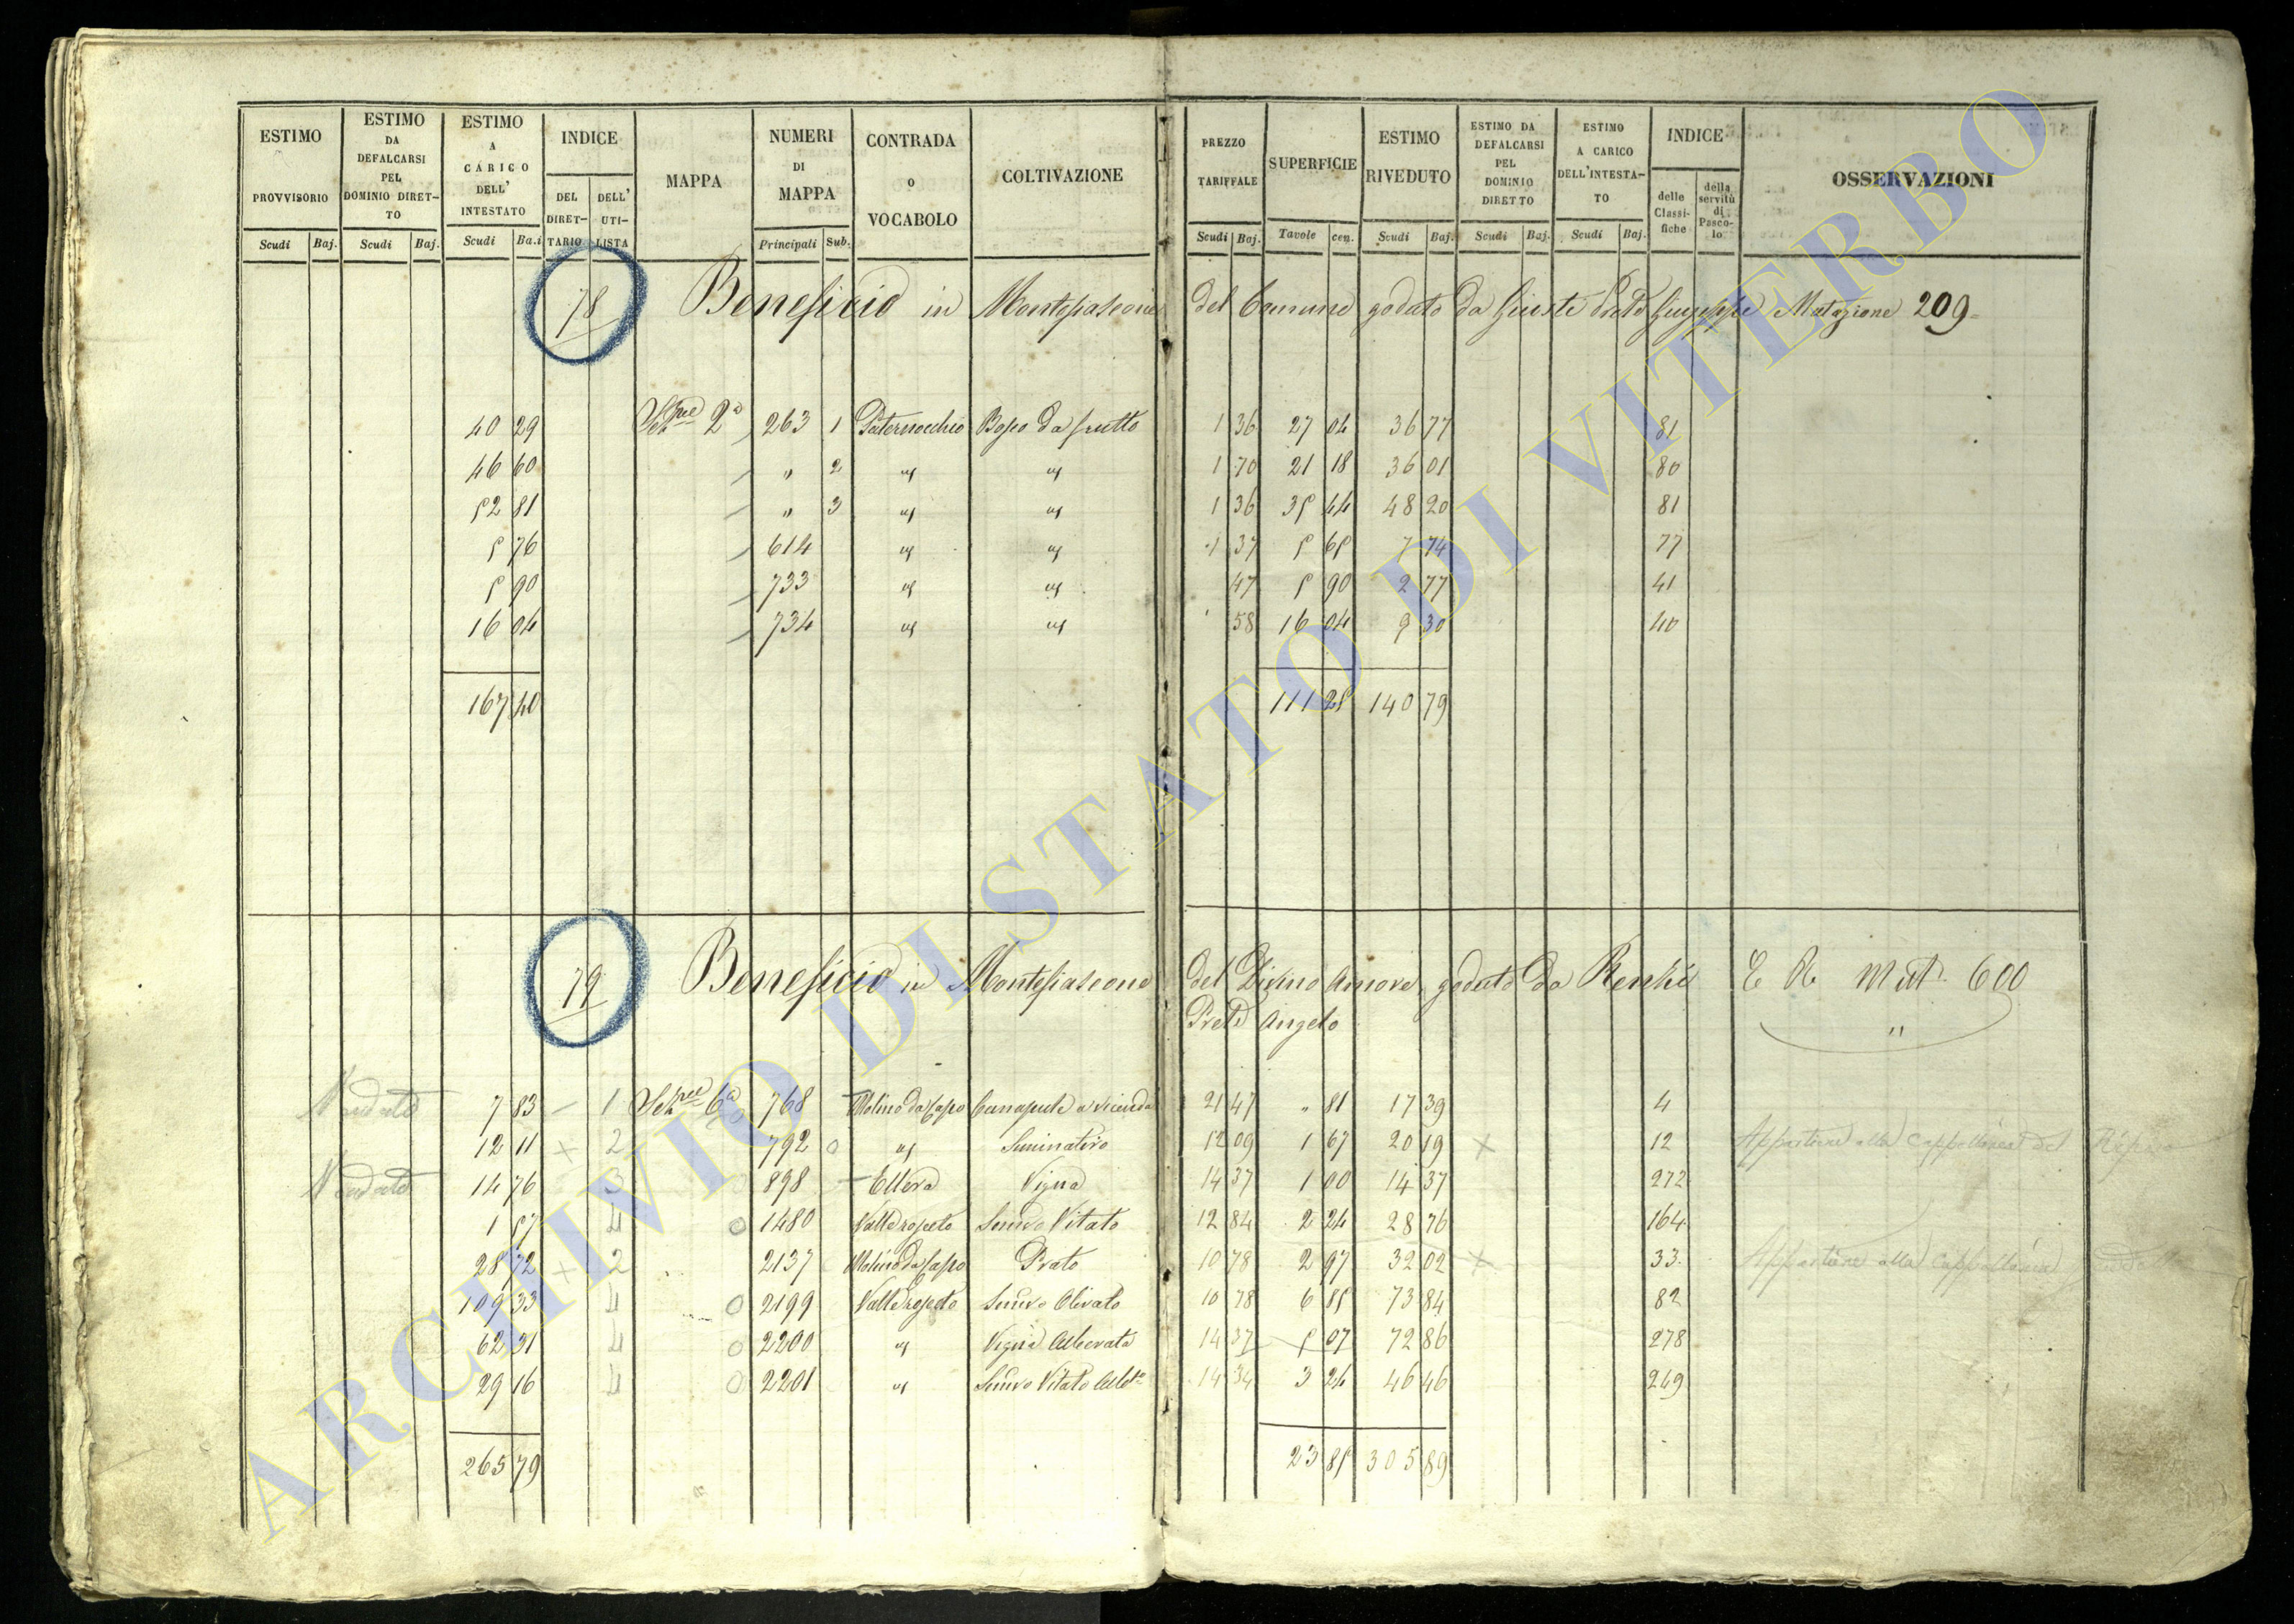 ESTIMO PROVVISORIO Scudi Baj.
ESTIMO DA DEFALCARSI PEL DOMINIO DIRETTO Scudi Baj.
ESTIMO A CARICO DELL' INTESTATO Scudi Ba.i
INDICE DEL DIRETTARIO DELL' UTILISTA
MAPPA
NUMERI DI MAPPA Principali Sub.
CONTRADA O VOCABOLO
COLTIVAZIONE
PREZZO TARIFFALE Scudi Baj.
SUPERFICIE Tavole cen.
ESTIMO RIVEDUTO Scudi Baj.
ESTIMO DA DEFALCARSI PEL DOMINIO DIRETTO Scudi Baj.
ESTIMO A CARICO DELL'INTESTATO Scudi Baj.
INDICE delle Classifiche della servitù di Pascolo
OSSERVAZIONI
78 Beneficio in Montefiascone del Comune goduto da Giusti Giuseppe Mutazione 209
40 29 2a 263 1 Paternocchio Bosco da frutto 1 36 27 04 36 77 81
46 60 " 2 " " 1 70 21 18 36 01 80
52 81 " 3 " " 1 36 35 44 48 20 81
5 76 614 " " 1 37 5 65 7 74 77
5 90 733 " " 47 5 90 2 77 41
16 04 734 " " 58 16 04 9 30 40
167 40 111 25 140 79
79 Beneficio in Montefiascone del Divino Amore, goduto da Renzi Mut. 600
Angelo "
7 83 1 6a 768 Molino da Capo Canapule a vicenda 21 47 " 81 17 39 4
12 11 2 792 " Seminativo 12 09 1 67 20 19 12 Appartiene alla Cappellania del
14 76 3 898 Ellera Vigna 14 37 1 00 14 37 272
1 57 4 1480 Valleroseto Semvo Vitato 12 84 2 24 28 76 164
28 72 2 2137 Molino da Capo Prato 10 78 2 97 32 02 33 Appartiene alla Cappellania
109 33 4 2199 Valleroseto Semvo Olivato 10 78 6 85 73 84 82
62 31 4 2200 " Vigna Alberata 14 37 5 07 72 86 278
29 16 4 2201 " Semvo Vitato Albto 14 34 3 24 46 46 249
265 79 23 85 305 89
ARCHIVIO DI STATO DI VITERBO